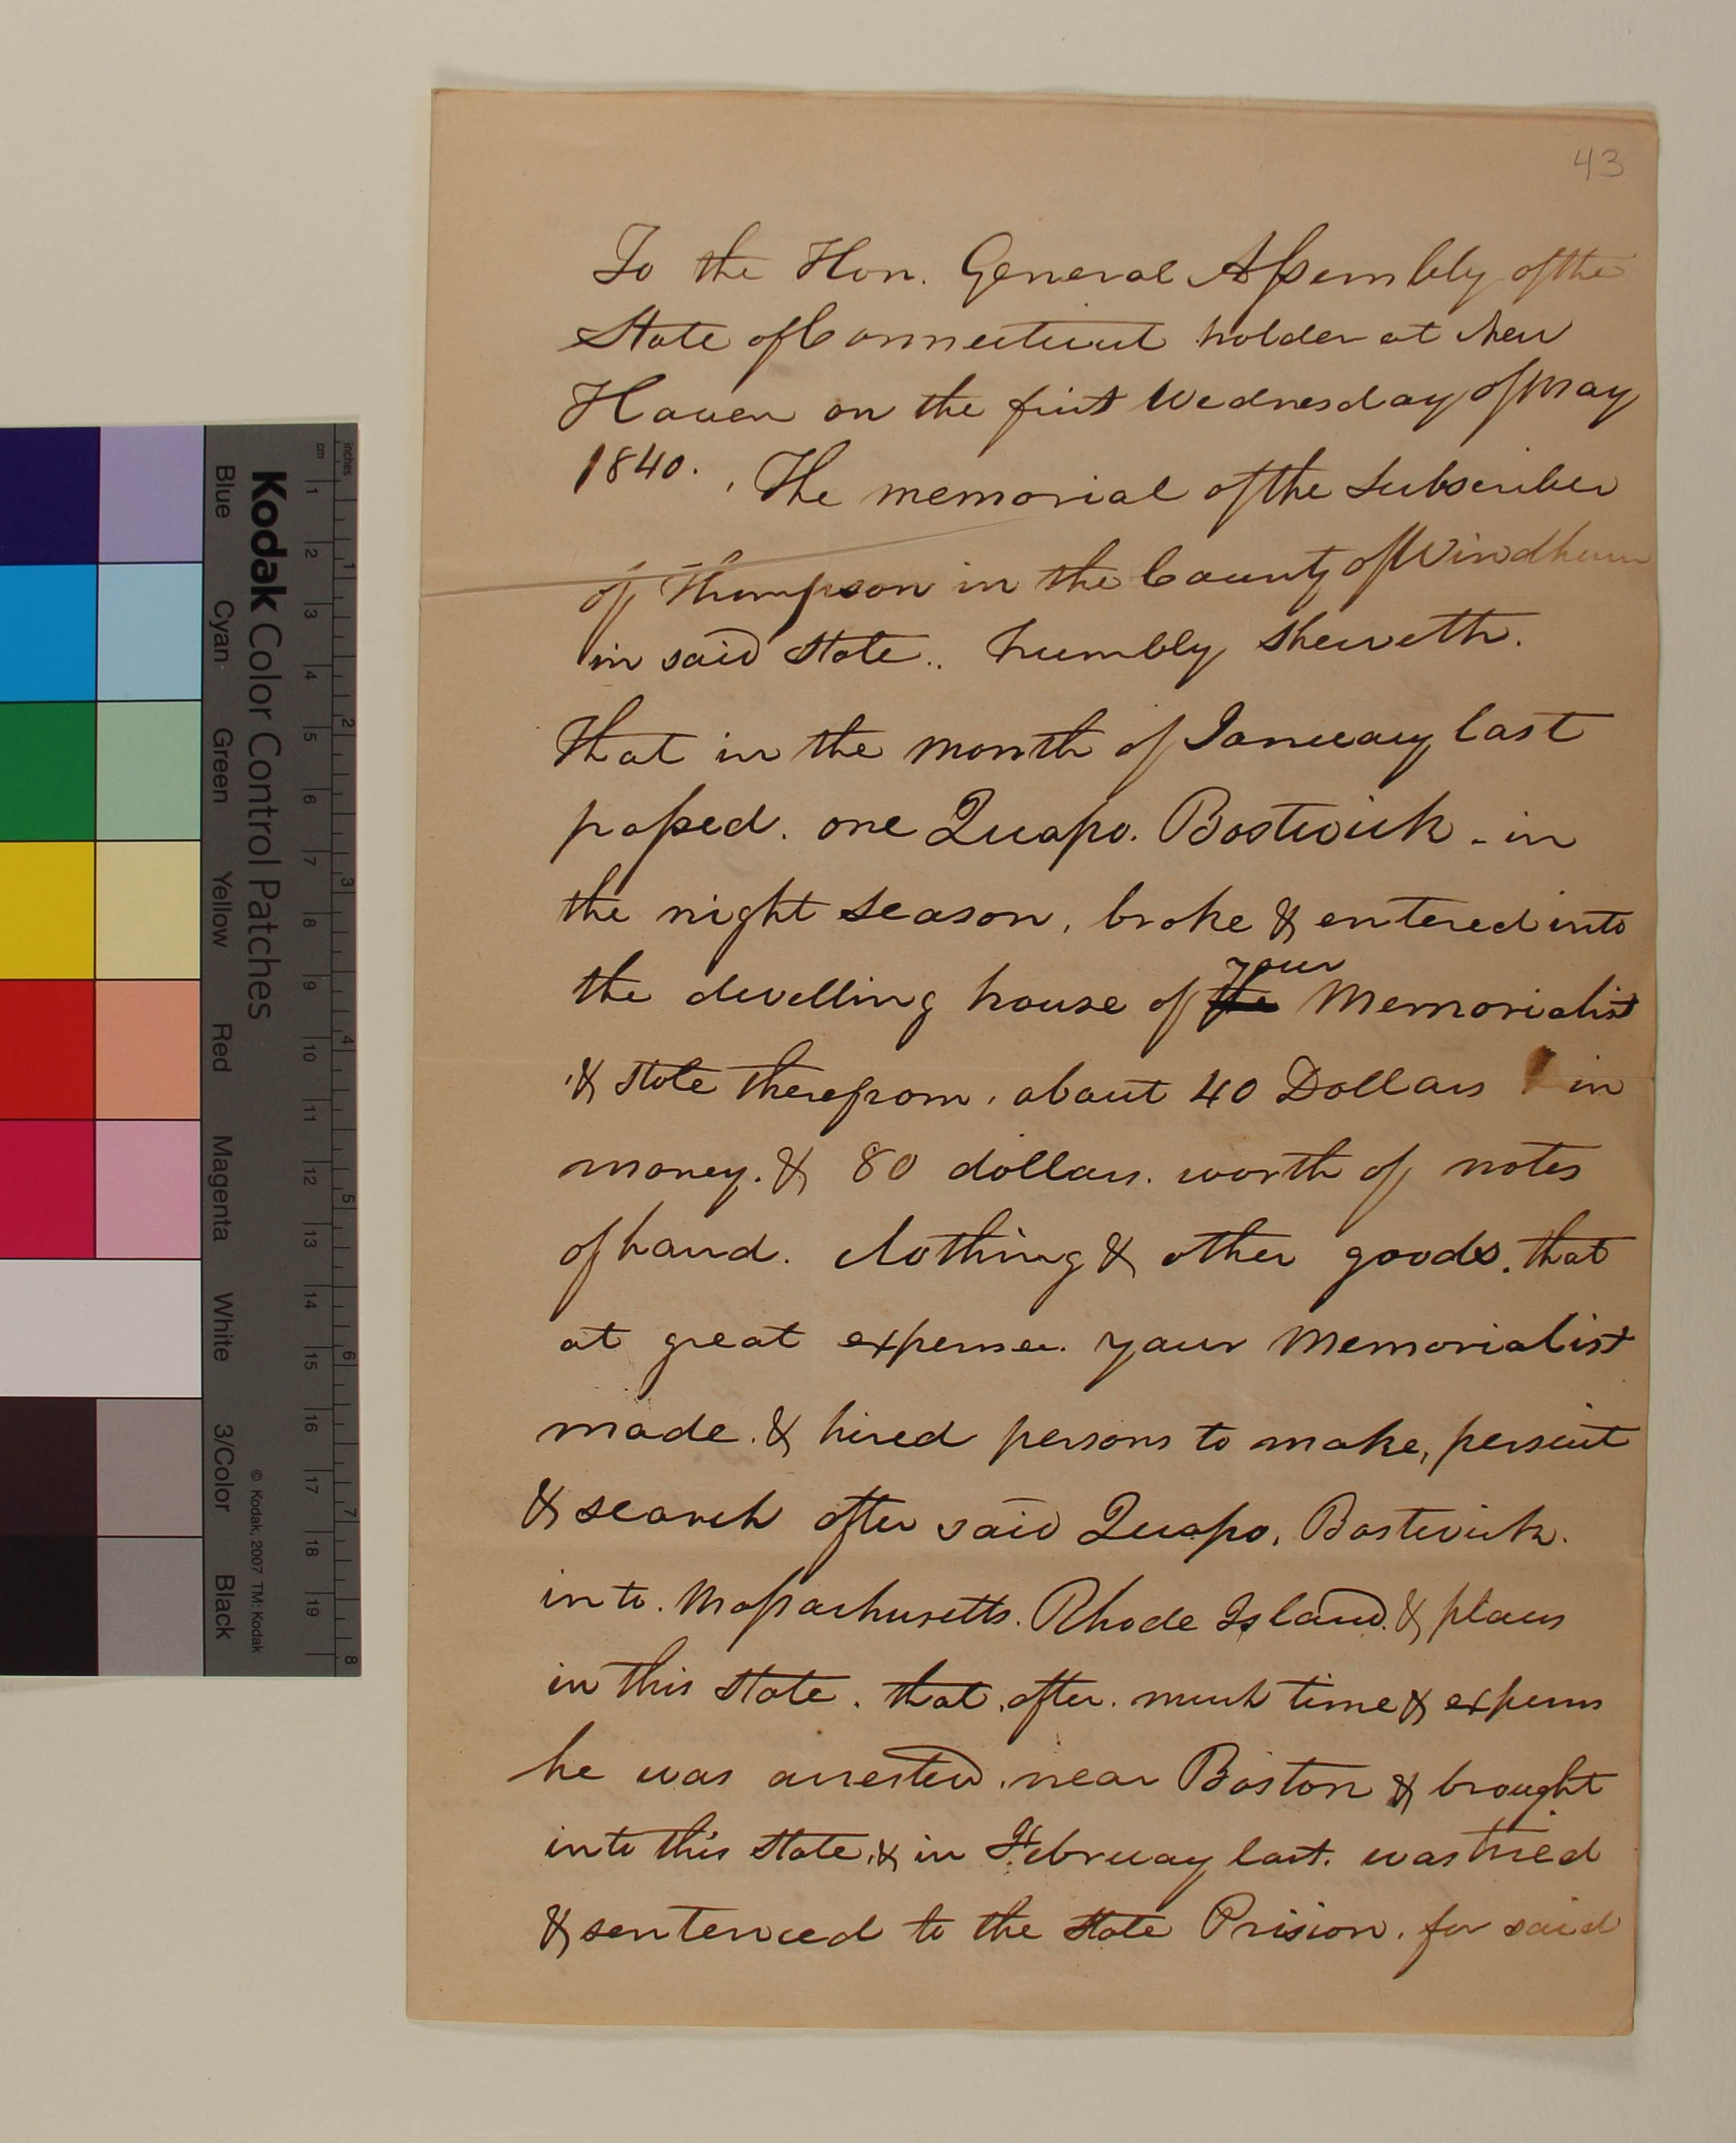 43
To the Hon. General Assembly of the
State of Connecticut holden at New
Haven on the first Wednesday of May
1840. , The memorial of the Subscriber
of Thompson in the County of Windham
in said State.. humbly sheweth.
That in the month of January last
passed. one Quapo. Bostwick - in
the night season, broke & entered into
your
the dwelling house of the Memorialist
& stole therefrom, about 40 Dollars in
money. & 80 dollars. worth of notes
of hand. clothing & other goods. that
at great expense. your Memorialist
made. & hired persons to make, persuit
& search after said Quapo, Bostwick.
into. Massachusetts. Rhode Island. & places
in this State. that. after. much time & expens
he was arrested. near Boston & brought
into this State, & in February last. was tried
& sentenced to the State Prision. for said
inches
cm
1 2 3 4 5 6 7 8 9 10 11 12 13 14 15 16 17 18 19
1 2 3 4 5 6 7 8
Kodak Color Control Patches
© Kodak, 2007 TM: Kodak
Blue Cyan Green Yellow Red Magenta White 3/Color Black